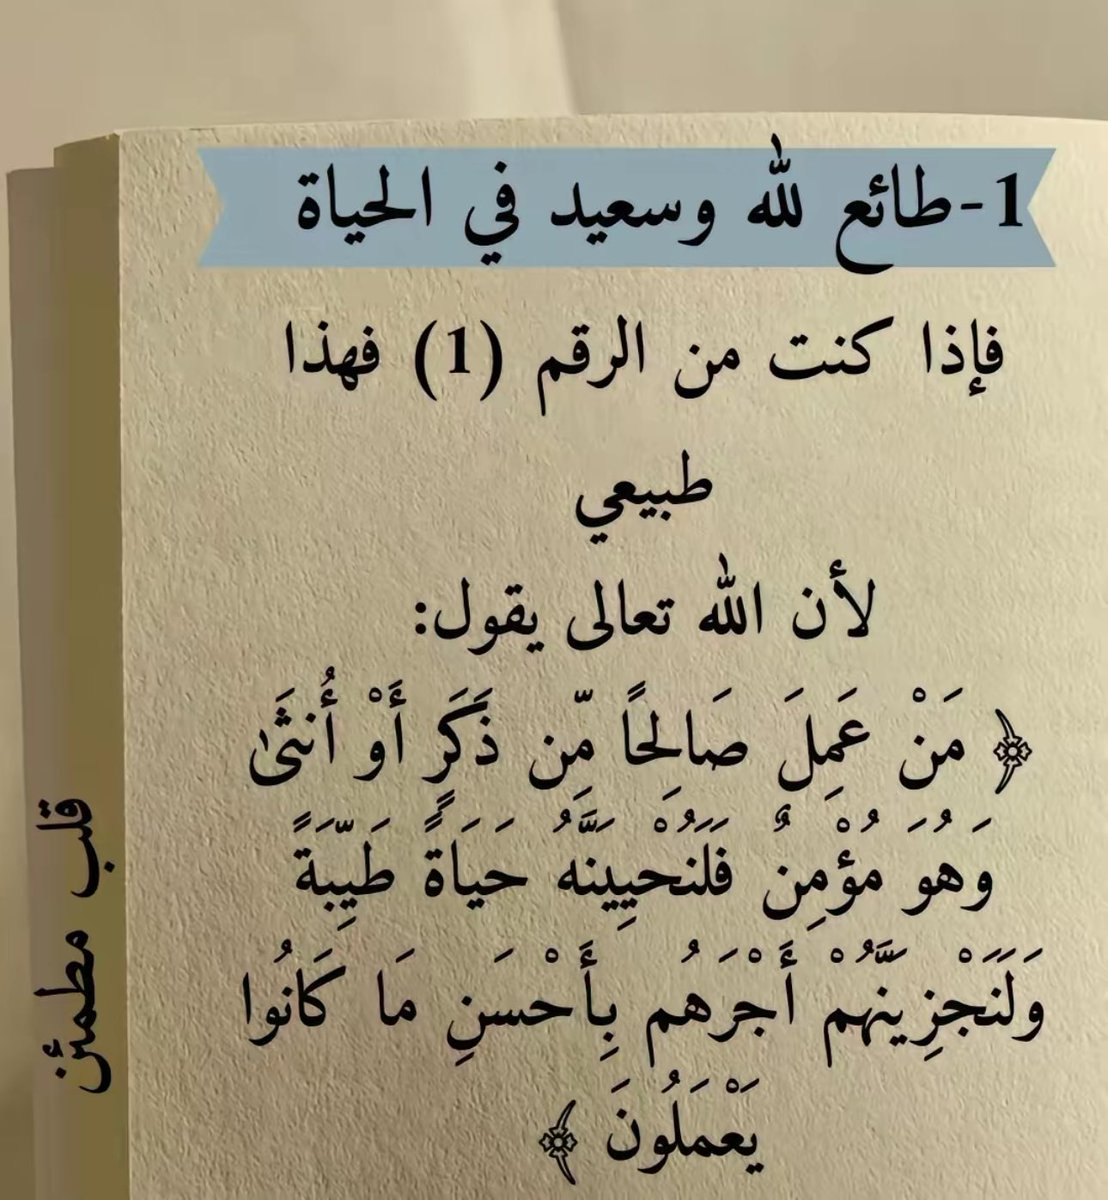 1-طائع لله وسعيد في الحياة
فإذا كنت من الرقم (1) فهذا
طبيعي
لأن الله تعالى يقول:
﴿ مَنْ عَمِلَ صَالِحًا مِّن ذَكَرٍ أَوْ أُنثَىٰ
وَهُوَ مُؤْمِنٌ فَلَنُحْيِيَنَّهُ حَيَاةً طَيِّبَةً
وَلَنَجْزِيَنَّهُمْ أَجْرَهُم بِأَحْسَنِ مَا كَانُوا
يَعْمَلُونَ ﴾
قلب مطمئن